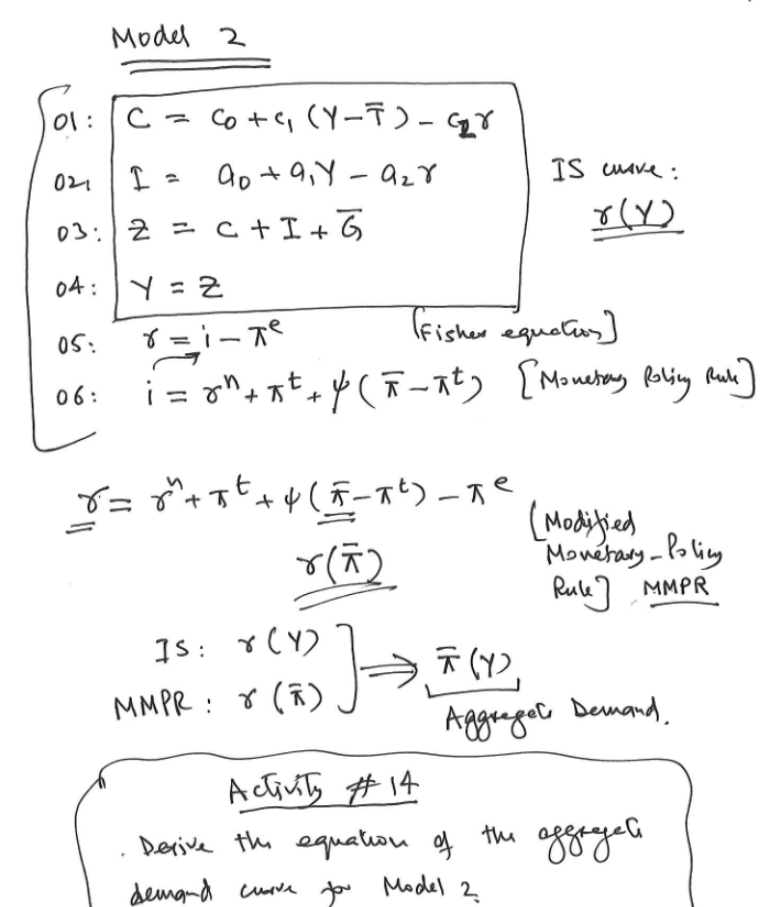 Model 2
01: C = c₀ + c₁ (Y – T̄) – c₂r
02: I = a₀ + a₁Y – a₂r
IS curve:
03: Z = C + I + Ḡ
r(Y)
04: Y = Z
05: r = i – π^e [Fisher equation]
06: i = r^n + π^t + ψ (π̄ – π^t) [Monetary Policy Rule]
r = r^n + π^t + ψ (π̄ – π^t) – π^e
[Modified
Monetary-Policy
Rule] MMPR
r(π̄)
IS: r (Y)
MMPR: r (π̄)
⟹ π̄ (Y)
Aggregate Demand.
Activity # 14
. Derive the equation of the aggregate
demand curve for Model 2.